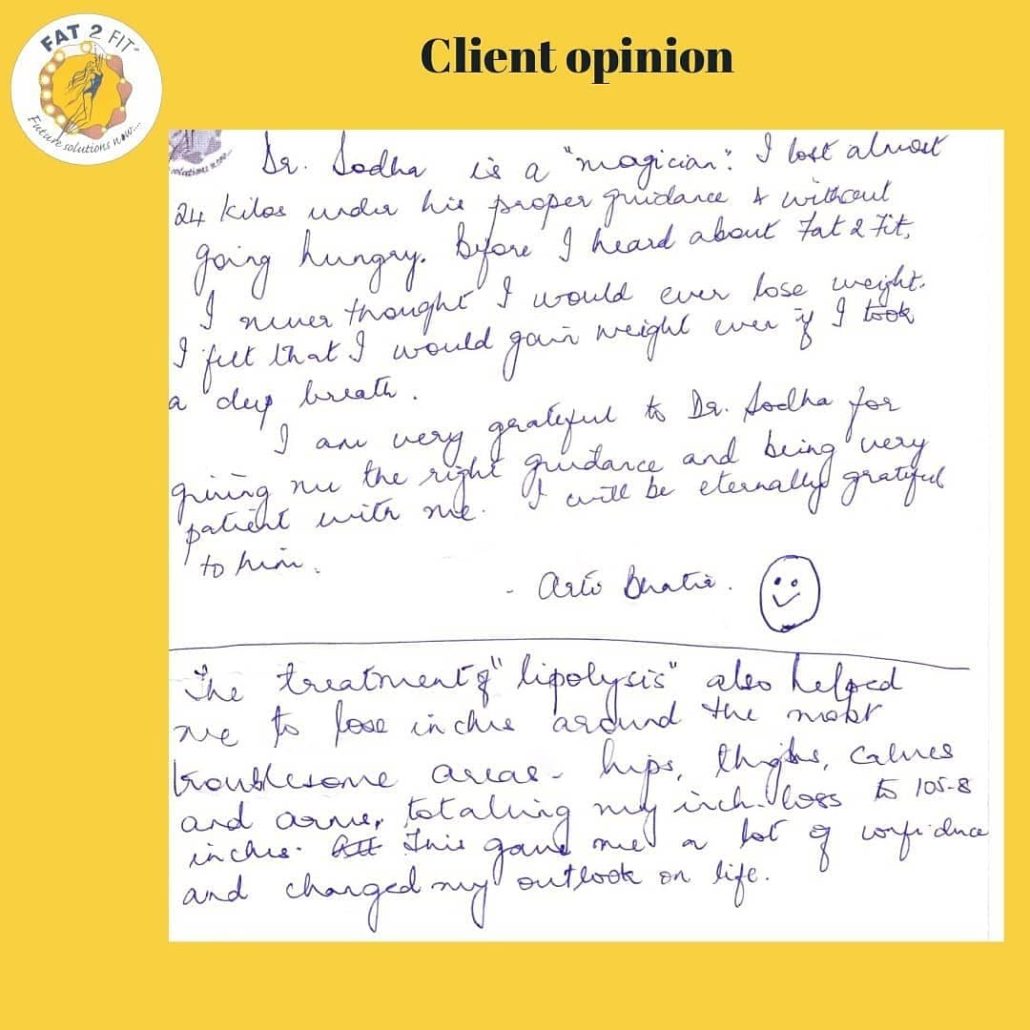 FAT 2 FIT
Future solutions now...
Client opinion
solutions now...
Dr. Sodha is a "magician". I lost almost
24 kilos under his proper guidance & without
going hungry. Before I heard about Fat 2 Fit,
I never thought I would ever lose weight.
I felt that I would gain weight even if I took
a deep breath.
I am very grateful to Dr. Sodha for
giving me the right guidance and being very
patient with me. I will be eternally grateful
to him.
- Arti Bhatia.
The treatment of "lipolysis" also helped
me to lose inches around the most
troublesome areas - hips, thighs, calves
and arms, totaling my inch-loss to 105-8
inches. This gave me a lot of confidence
and changed my outlook on life.